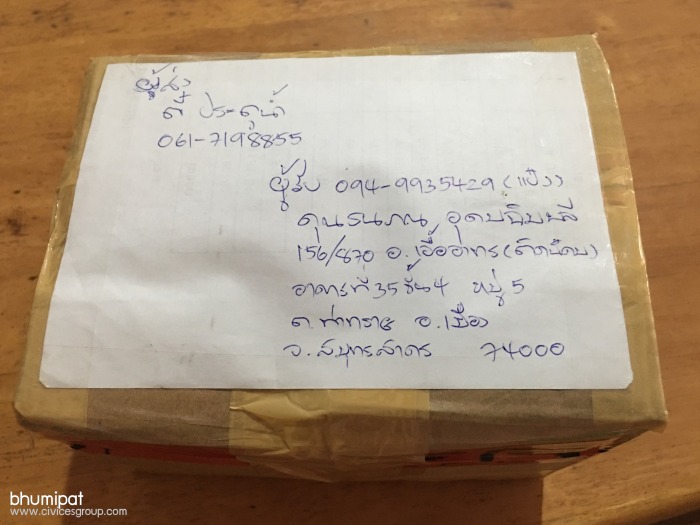 ผู้ส่ง
ตี๋ ประตูน้ำ
061-7198855
ผู้รับ 094-9935429 (แป้ง)
คุณรนภณ
156/870 อ.เอื้ออาทร(
อาคารที่ 35 ชั้น 4 หมู่ 5
ต.ท่าทราย อ.เมือง
จ.สมุทรสาคร 74000
bhumipat
www.civicesgroup.com